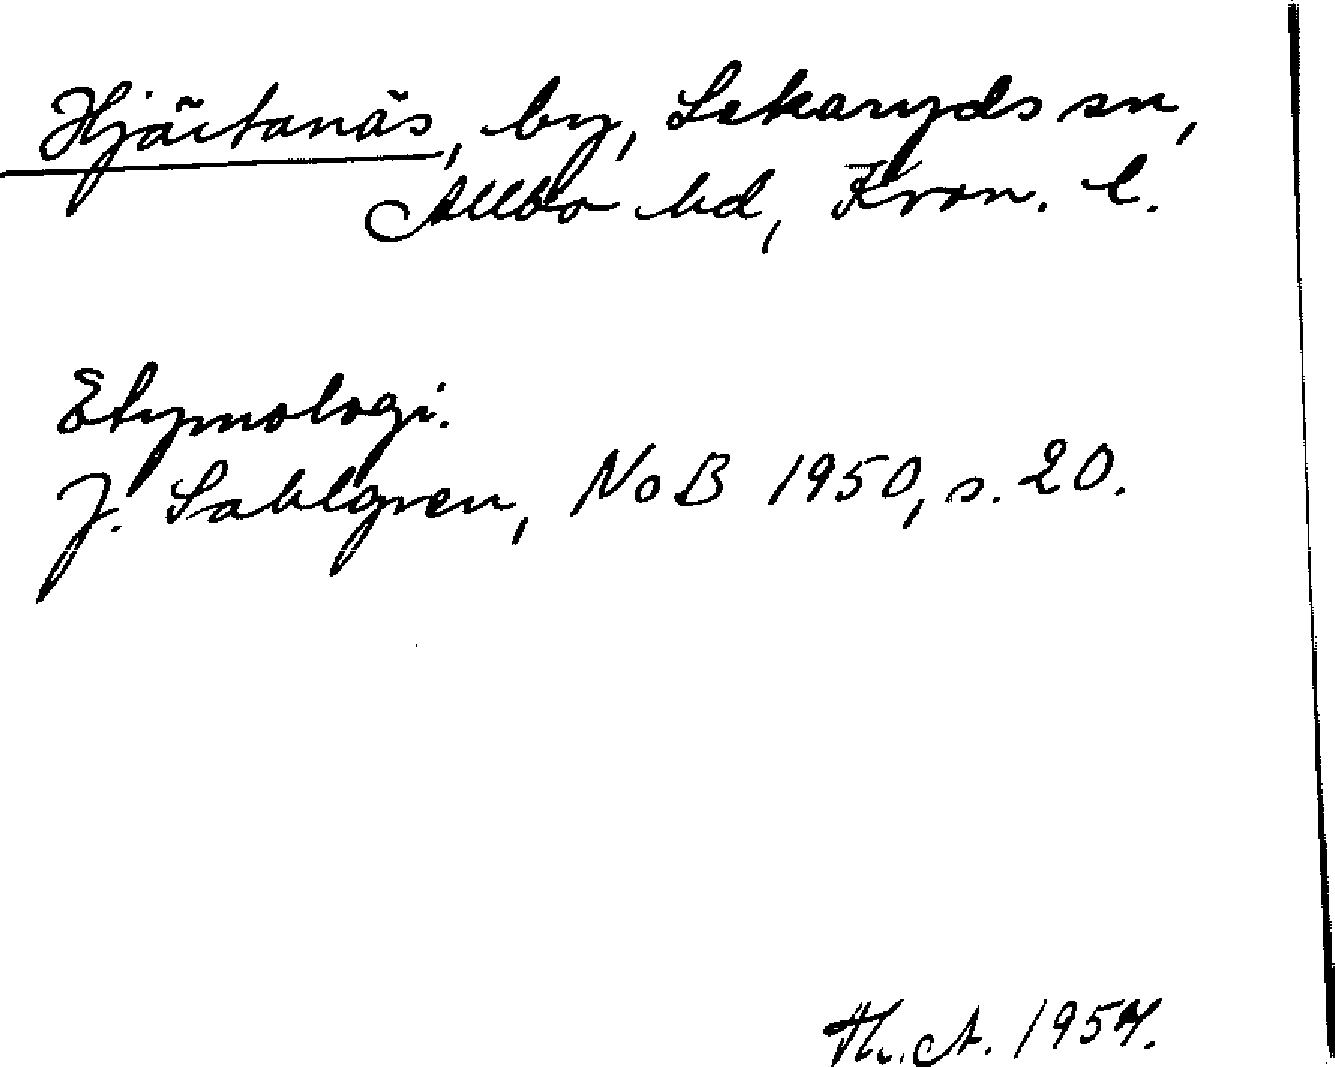 Hjärtanäs, by, Lekaryds sn,
Allbo hd, Kron. l.
Etymologi.
J. Sahlgren, NoB 1950, s. 20.
Th. A. 1957.